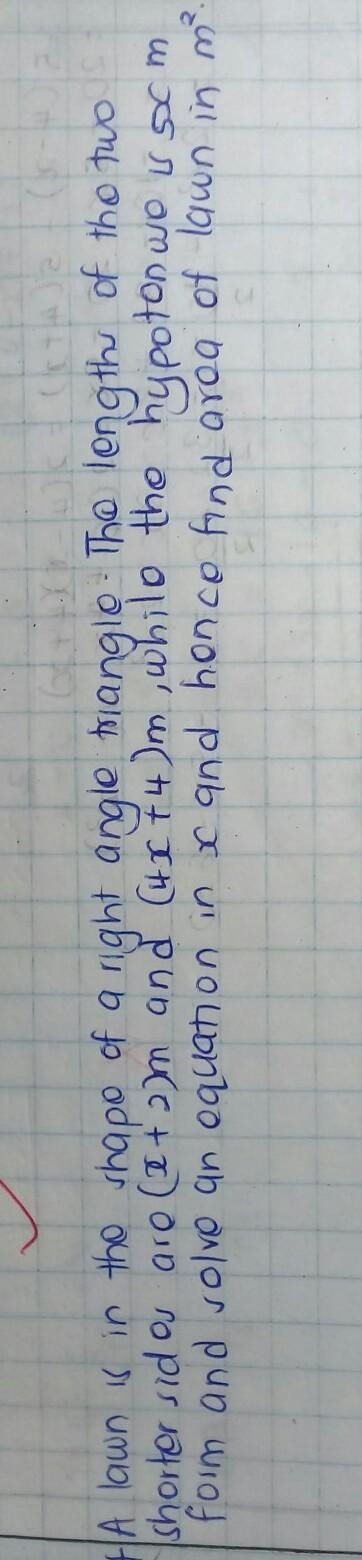 A lawn is in the shape of a right angle triangle. The lengths of the two
shorter sides are (x + 2)m and (4x + 4)m, while the hypotenuse is 5x m
form and solve an equation in x and hence find area of lawn in m².